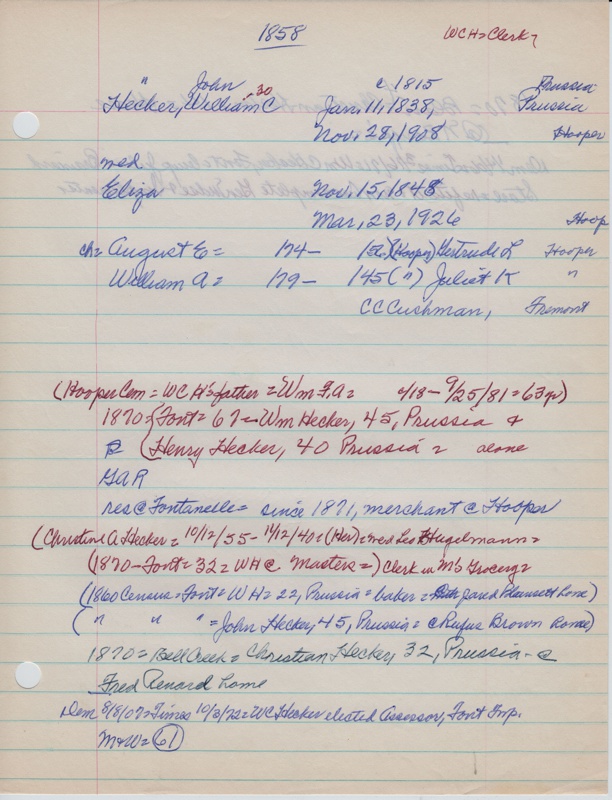 1858 WCH=Clerk
" John c 1815 Prussia
Hecker, William C 30 Jan. 11, 1838, Prussia
Nov. 28, 1908 Hooper
med
Eliza Nov. 15, 1848
Mar, 23, 1926 Hoop
ch= August E= 174— (Hooper) Gertrude L Hooper
William A= 179— 145 (") Juliet K "
CC Cushman, Fremont
(Hooper Cem = WCH's father = Wm F.A= 4/18— 9/25/81=63yr)
1870 = (Font= 67= Wm Hecker, 45, Prussia &
(Henry Hecker, 40 Prussia = alone
GAR
res @ Fontanelle= since 1871, merchant @ Hooper
(Christine A Hecker = 10/12/55— /12/40= (Her)= Hugelmann=
(1870—Font= 32= WH @ Masters=) Clerk in M's Grocery=
(1860 Census=Font= WH= 22, Prussia= baker= Jared Blansett home)
(" " " =John Hecker, 45, Prussia= @ Rufus Brown Home)
1870= Bell Creek= Christian Hecker, 32, Prussia- @
Fred Renard home
Dem 8/8/07=Times 10/3/72=WC Hecker elected Assessor, Font Twp.
M&W= 61